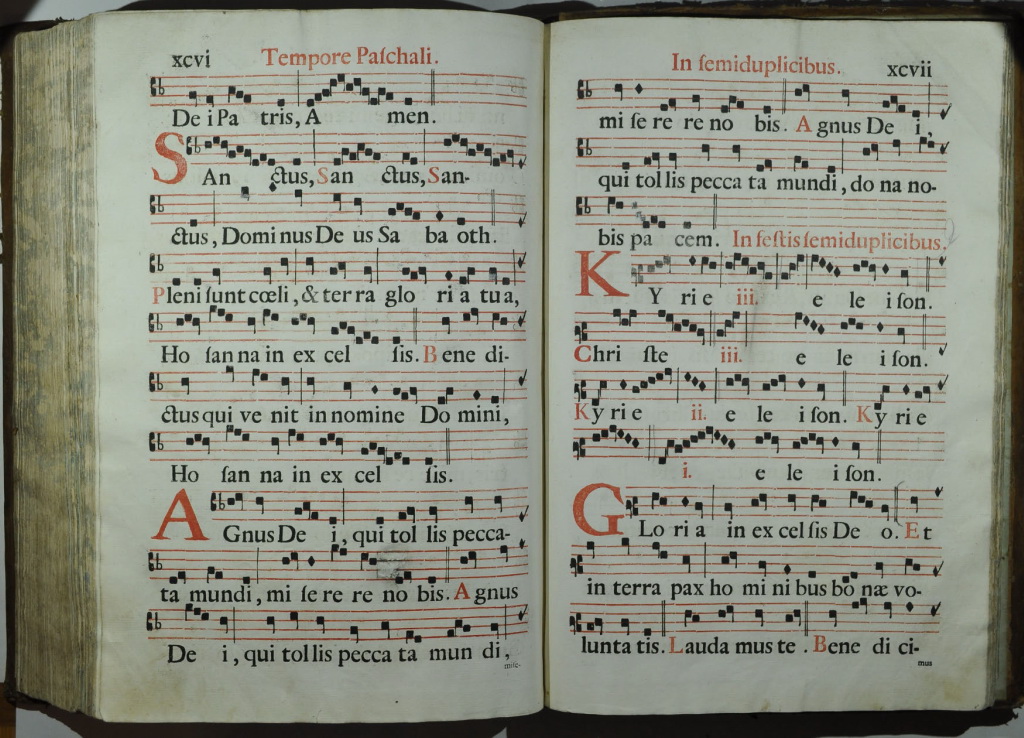 xcvi Tempore Paſchali.
De i Pa tris, A men.
SAn ctus, San ctus, San-
ctus, Domi nus De us Sa ba oth.
Pleni ſunt cœli, & ter ra glo ri a tu a,
Ho ſan na in ex cel ſis. B ene di-
ctus qui ve nit in nomine Do mini,
Ho ſan na in ex cel ſis.
AGnus De i, qui tol lis pecca-
ta mundi, mi ſe re re no bis. A gnus
De i, qui tol lis pecca ta mun di,
miſe-
In ſemiduplicibus. xcvii
mi ſe re re no bis. A gnus De i,
qui tol lis pecca ta mundi, do na no-
bis pa cem. In feſtis ſemiduplicibus.
KY rie iii. e le i ſon.
Chri ſte iii. e le i ſon.
Ky ri e ii. e le i ſon. Ky ri e
i. e le i ſon.
GLo ri a in ex cel ſis De o. Et
in terra pax ho mi ni bus bo næ vo-
lunta tis. Lauda mus te . Bene di ci-
mus